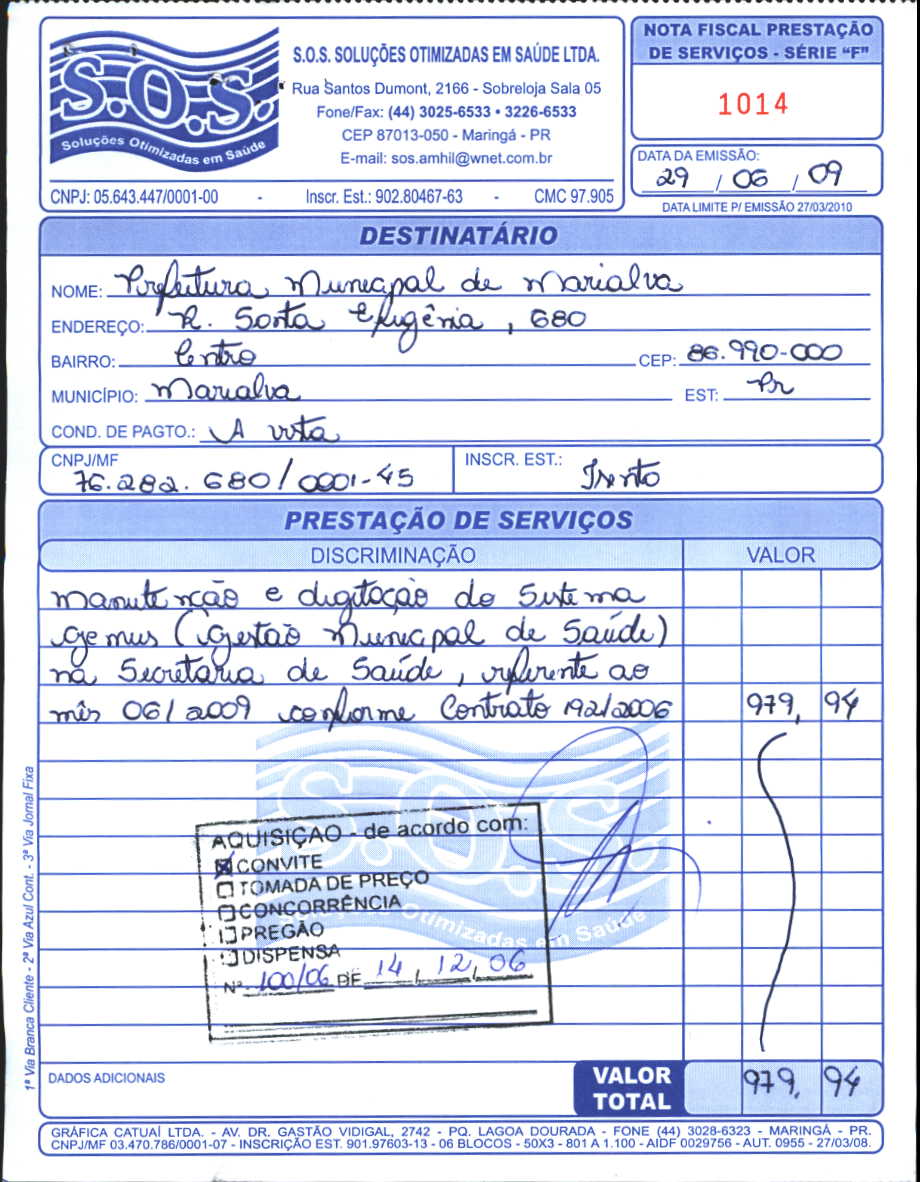 S.O.S.
Soluções Otimizadas em Saúde
S.O.S. SOLUÇÕES OTIMIZADAS EM SAÚDE LTDA.
Rua Santos Dumont, 2166 - Sobreloja Sala 05
Fone/Fax: (44) 3025-6533 • 3226-6533
CEP 87013-050 - Maringá - PR
E-mail: sos.amhil@wnet.com.br
CNPJ: 05.643.447/0001-00 - Inscr. Est.: 902.80467-63 - CMC 97.905
NOTA FISCAL PRESTAÇÃO
DE SERVIÇOS - SÉRIE “F”
1014
DATA DA EMISSÃO:
29 / 06 / 09
DATA LIMITE P/ EMISSÃO 27/03/2010
DESTINATÁRIO
NOME: Prefeitura Municipal de Marialva
ENDEREÇO: R. Santa Efigênia, 680
BAIRRO: Centro CEP: 86.990-000
MUNICÍPIO: Marialva EST: Pr
COND. DE PAGTO.: A vista
CNPJ/MF 76.282.680/0001-45 INSCR. EST.: Isento
PRESTAÇÃO DE SERVIÇOS
DISCRIMINAÇÃO VALOR
Manutenção e digitação do Sistema
Gemus (Gestão Municipal de Saúde)
na Secretaria de Saúde, referente ao
mês 06/2009 conforme Contrato 192/2006 979,94
S.O.S.
Soluções Otimizadas em Saúde
AQUISIÇAO - de acordo com:
CONVITE
TOMADA DE PREÇO
CONCORRÊNCIA
PREGÃO
DISPENSA
Nº 100/06 DE 14, 12, 06
DADOS ADICIONAIS
VALOR TOTAL 979,94
1ª Via Branca Cliente - 2ª Via Azul Cont. - 3ª Via Jornal Fixa
GRÁFICA CATUAÍ LTDA. - AV. DR. GASTÃO VIDIGAL, 2742 - PQ. LAGOA DOURADA - FONE (44) 3028-6323 - MARINGÁ - PR.
CNPJ/MF 03.470.786/0001-07 - INSCRIÇÃO EST. 901.97603-13 - 06 BLOCOS - 50X3 - 801 A 1.100 - AIDF 0029756 - AUT. 0955 - 27/03/08.